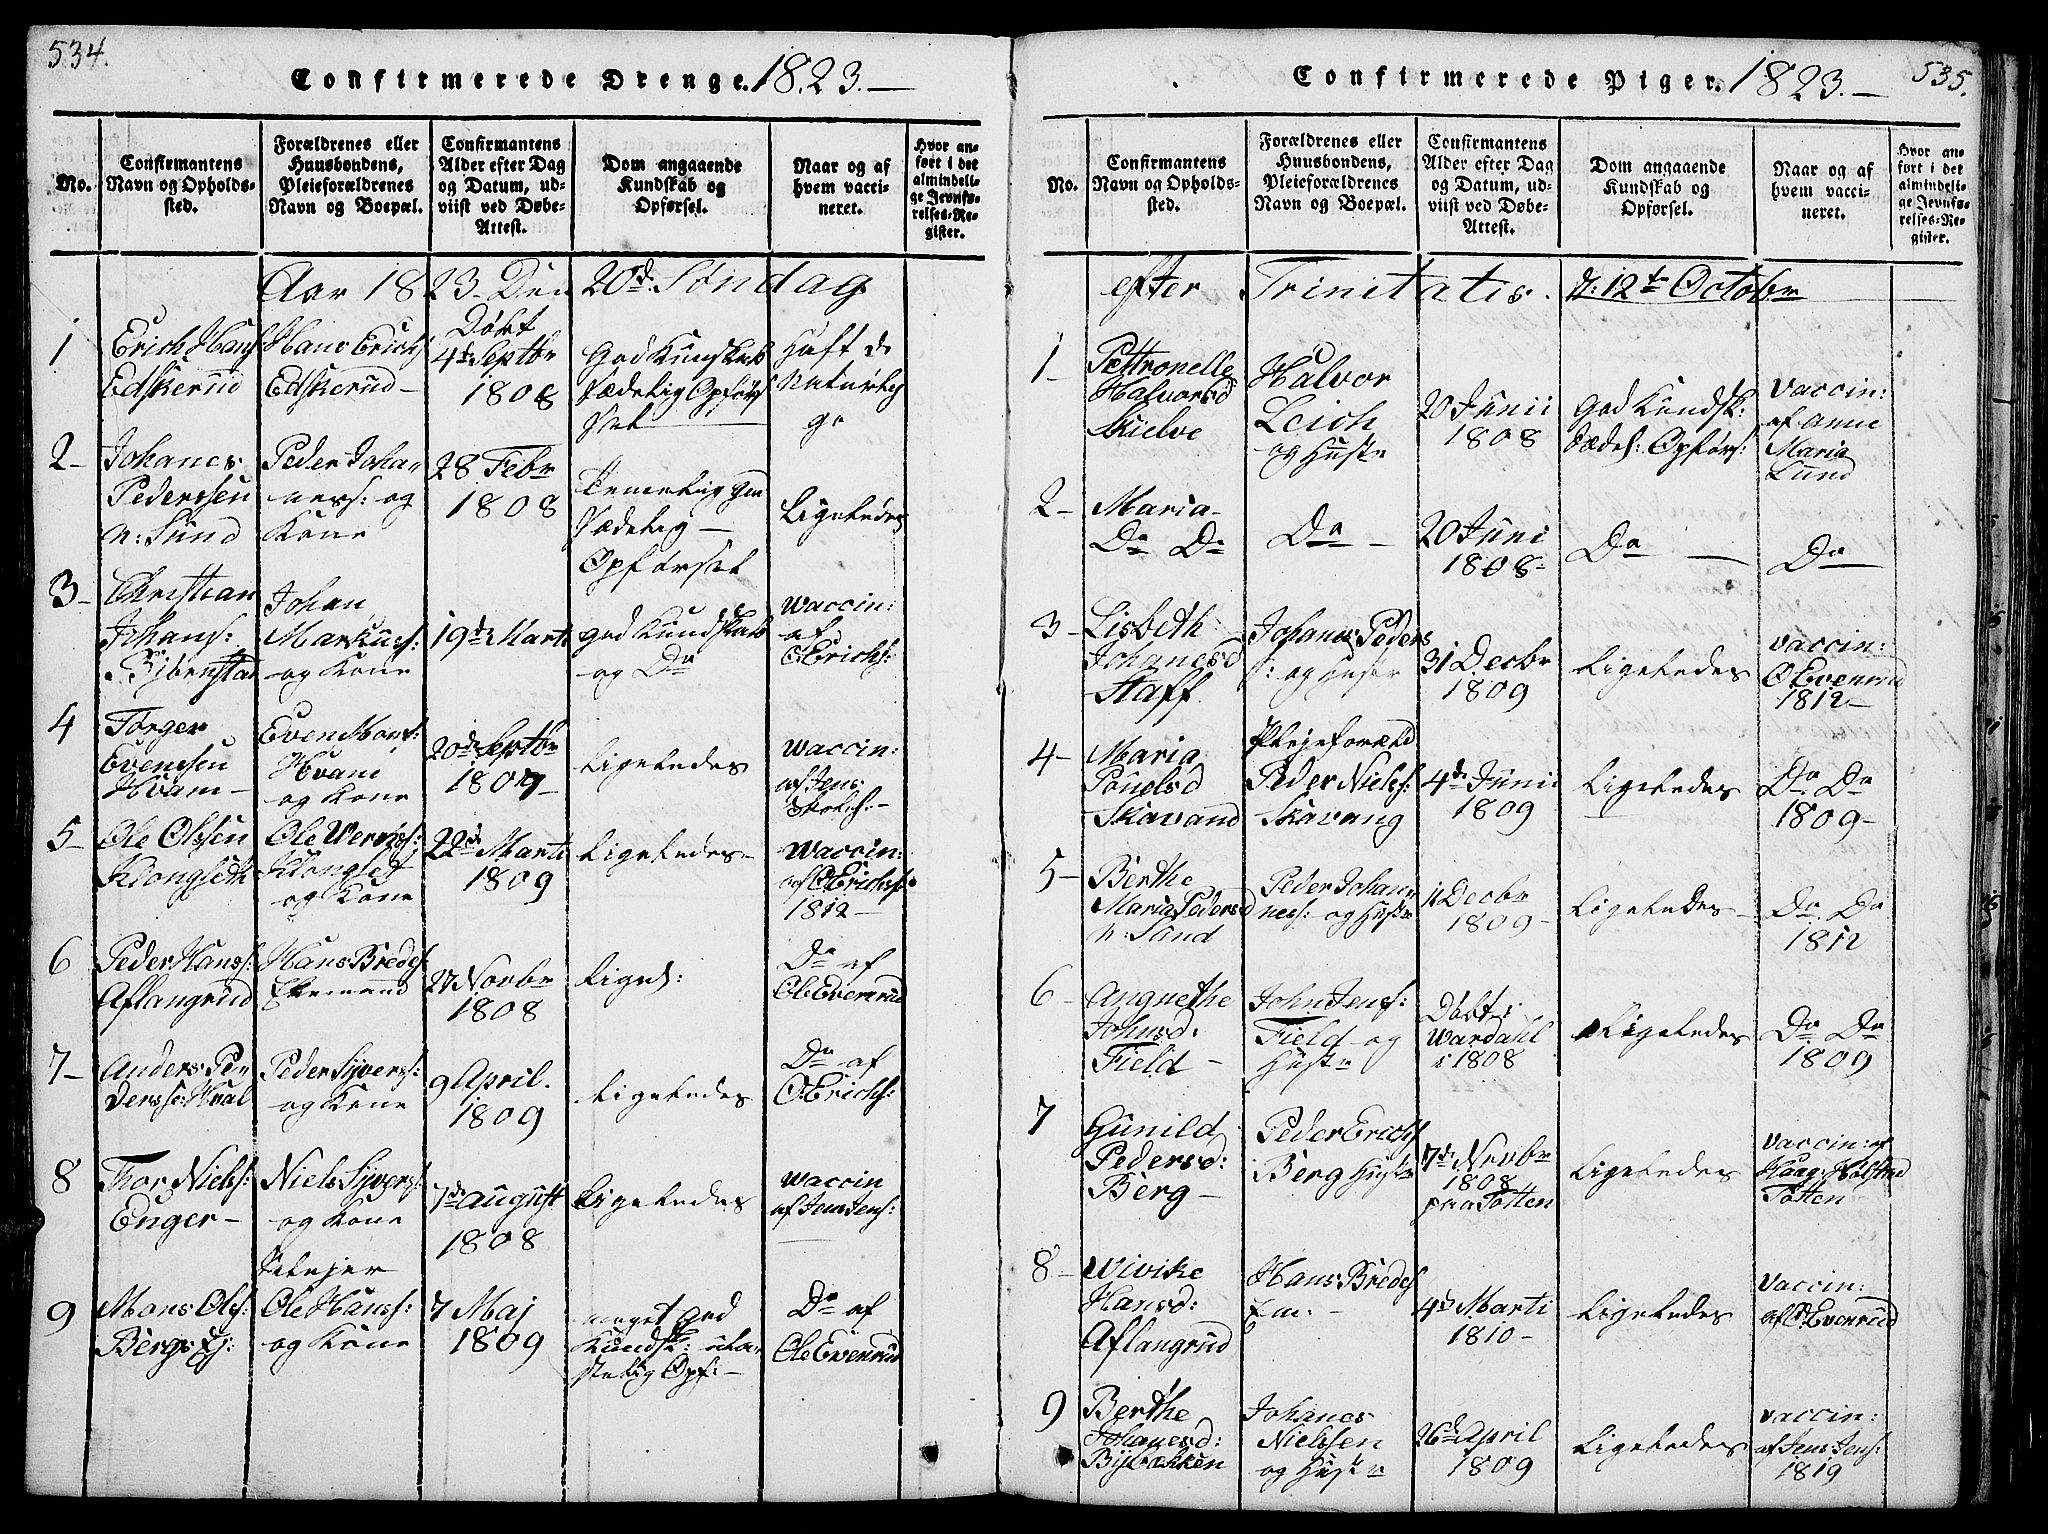 534.
Confirmerede Drenge. 1823.—
No.
Confirmantens Navn og Opholds-sted.
Forældrenes eller Huusbondens, Pleieforældrenes Navn og Boepæl.
Confirmantens Alder efter Dag og Datum, ud-viist ved Døbe-Attest.
Dom angaaende Kundskab og Opførsel.
Naar og af hvem vacci-neret.
Hvor an-ført i det almindeli-ge Jevnfø-relses-Re-gister.
Aar 1823. Den 20de Søndag
1
Erich Hans
Edskerud
Hans Erichs
Edskerud—
Døbt
4de Septbr
1808
God Kundskab
Sædelig Opførs
Haft de
Naturlig
ge
2-
Johanes
Pederssen
n: Sund
Peder Joha-
ness: og
Kone
28. Febr
1808
Sædelig —
Opførsel
Ligeledes
3-
Christian
Johans:
Johan
Markuss:
og Kone
19de Marti
god Kundskab
og Do
Waccin:
af
O. Erichs:
4
Torger
Evenssen
Hvam—
Even Mons:
Hvam
og Kone
20de Septbr
1807
Ligeledes
Waccin:
af Jens
5-
Ole Olssen
Klongseth
Ole
Klongset
og Kone
22de Marti
1809
Ligeledes-
Waccin:
af O. Erichs:
1812—
6
Peder Hanss:
Aflangrud
Hans Bredes:
27 Novbr
1808
Liges:
Do af
Ole Evenrud
7-
Anders Pe-
derss: Hval
Peder Syvers:
og Kone
9 April.
1809
Ligeledes
Do af
O. Erichs:
8
Thor Niels:
Enger—
Niels Syvers:
og Kone
7de August
1808
Ligeledes
Waccin
af Jens Jens:
9
Mons Ols:
Bergs Ej:
Ole Hanss:
og Kone
7 Maj
1809
meget god
Kundsk:
Opf:—
Do af
Ole Evenrud
535.
Confirmerede Piger. 1823.—
No.
Confirmantens Navn og Opholds-sted.
Forældrenes eller Huusbondens, Pleieforældrenes Navn og Boepæl.
Confirmantens Alder efter Dag og Datum, ud-viist ved Døbe-Attest.
Dom angaaende Kundskab og Opførsel.
Naar og af hvem vacci-neret.
Hvor an-ført i det almindeli-ge Jevnfø-relses-Re-gister.
efter Trinitatis. d: 12te Octobr
1-
Pettronelle
Halvorsd
Skielve
Halvor
Leich
og Hustr
20 Junii
1808
God Kundsk:
Sædel: Opførs:
Vaccin:
af Anne
Maria
Lund
2-
Maria-
Do Do
Do —
20 Juni
1808-
Do —
Do
3-
Lisbeth
Johanesd
Staff
Johanes Peders
s: og Hustr
31 Decbr
1809
Ligeledes
Vaccin:
O Evenrud
1812—
4-
Maria
Pouelsd
Skavand
Plejeforæld
Peder Niels:
Skavang
4de Junii
1809
Ligeledes
Do Do
1809-
5-
Berthe
Maria Pedersd
n: Sand
Peder Johan-
ness: og Hustr
11 Decbr
1809-
Ligeledes-
Do Do
1812
6-
Angnethe
Johnsd:
Field-
John Jens:
Field og
Hustr
Døbt i
Wardahl
i 1808
Ligeledes
Do Do
1809
7
Gunild
Pedersd:
Berg—
Peder Erichs
Berg Hustr
7de Novbr
1808
paa Totten
Ligeledes
Vaccin: af
Totten
8-
Wivike
Hansd:
Aflangrud
Hans Bredes
4de Marti
1810-
Ligeledes
Vaccin:
af O. Evenrud
9
Berthe
Johanesd:
Bybækken
Johanes
Nielssen
og Hustr
26de April
1809
Ligeledes
Vaccin:
af Jens Jens:
1819